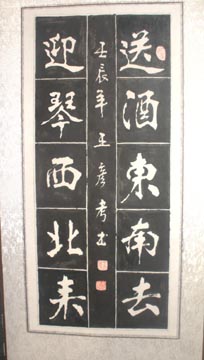 送酒東南去
迎琴西北来
壬辰年王彦考书